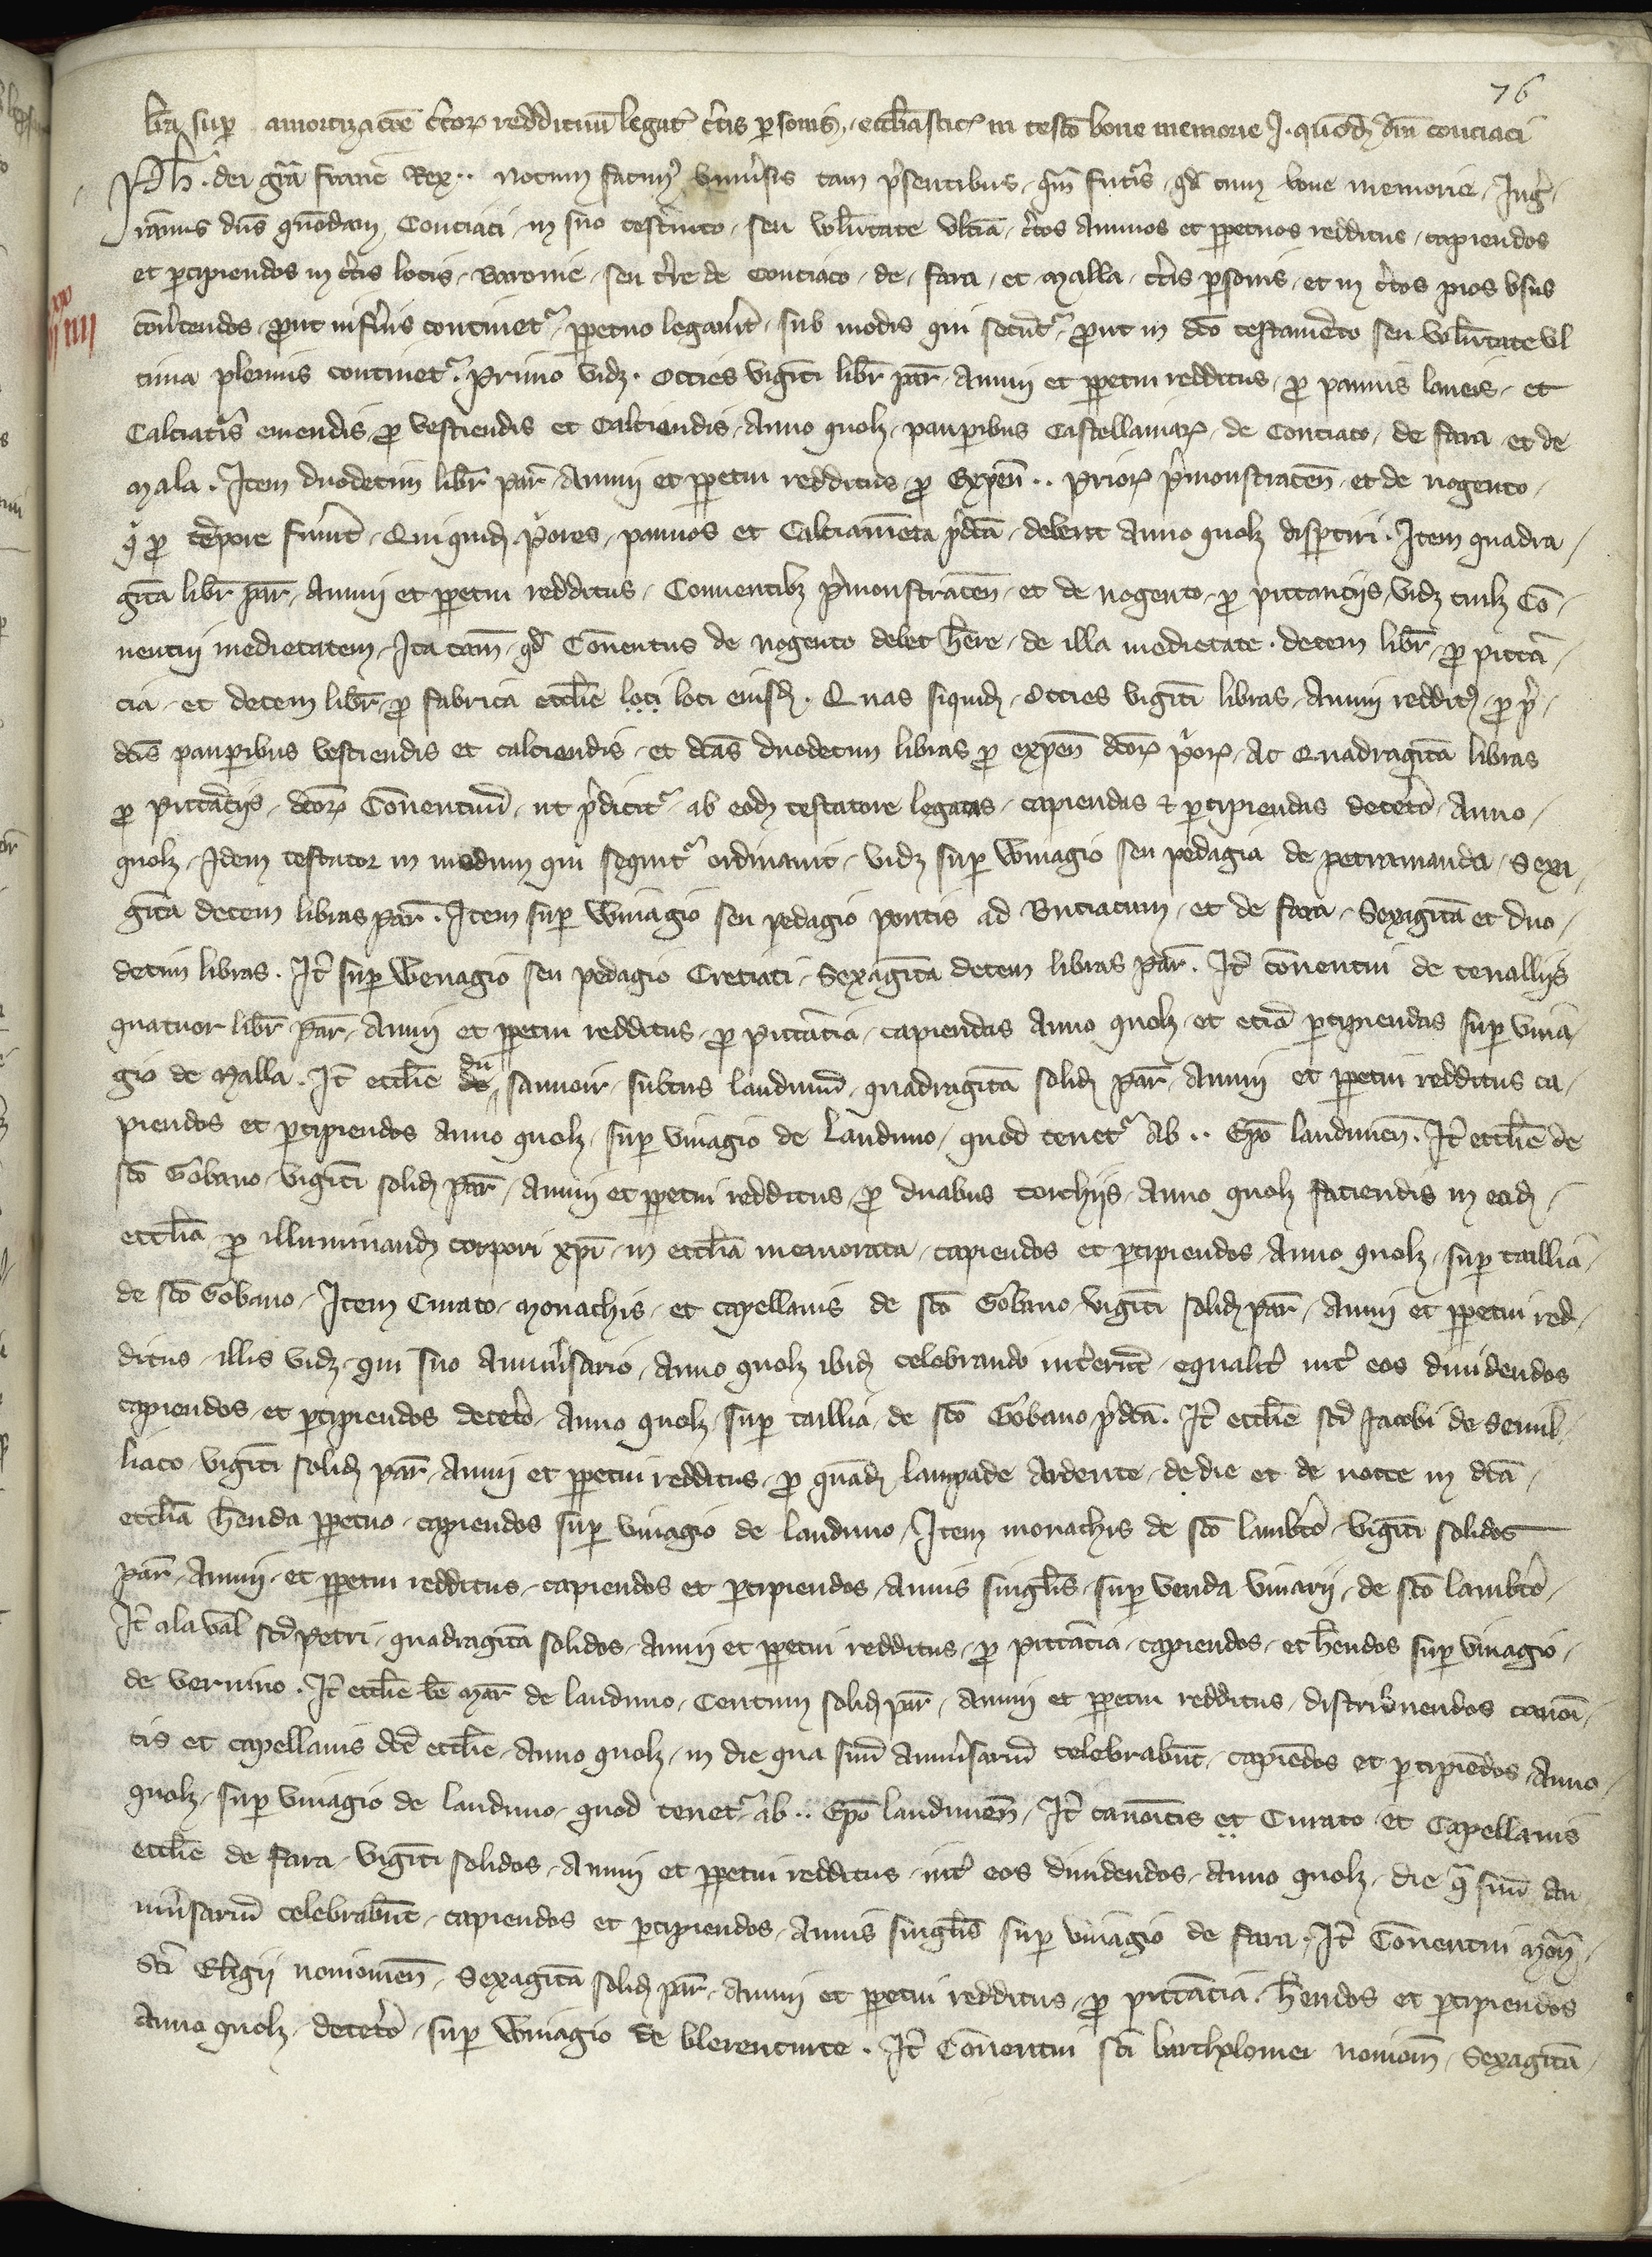 76
lr̄a sup amortizac̄oe c̄torꝝ reddituū legat̄ c̄tis ꝑsonis, eccl̄iasticꝭ in testō bone memorie J. quōdꝫ dn̄i conciaci
Ph̄. dei gr̄a franc̄ Rex .. Notum facimꝰ vniūsis tam p̄sentibus, qm̄ futuris, qd̄ cum bone memorie, Ing̃
rannus dn̄s quōdam, Couciaci, in suo testm̄to, seu volūtate vltīa, c̄tos Annuos et ꝑpetuos redditus, capiendos
et ꝑcipiendos in c̄tis locis, Baronie, seu t̄re de Couciaco, de, fara, et Malla, c̄tis ꝑsonis, et in c̄tos pios vsus
cōūtendos, ꝓut inferiꝰ continetᷣ, ꝑpetuo legauit, sub modis qui secūtᷣ, ꝓut in dc̄o testamēto seu volūtate vl
tima plenius continetᷣ. Primo vidꝫ. Occies viginti libr̄ par̄, Annui et ꝑpetui redditus, ꝓ pannis laneis, et
Calciatis emendis, ꝓ vestiendis et Calciendis, Anno quolꝫ, pauꝑibus Castellaniarꝝ, de Couciaco, de fara et de
Mala. Item duodecim libr̄ par̄ Annui et ꝑpetui redditus, ꝓ Expen̄ .. Priorꝝ p̄monstraten̄, et de Nogento,
q̄ ꝓ tēpore fuerint, Quiquidꝫ p̄ores, pannos et Calciamēta p̄dc̄a, debent Anno quolꝫ dispartiri. Item quadra,
ginta libr̄ par̄, Annui et ꝑpetui redditus, Conuentibꝫ p̄monstraten̄, et de Nogento, ꝓ pittanciis, vidꝫ cuilꝫ Cō,
uentui medietatem, Ita tam̄, qd̄ Conuentus de Nogento debet h̄ere, de illa medietate, decem libr̄, ꝓ pittā,
cia, et decem libr̄, ꝓ fabrica eccl̄ie loci loci eiusdꝫ. Quas siquidꝫ, Occies viginti libras, Annui redditꝫ, ꝓ p̄,
dc̄is pauꝑibus vestiendis et calciendis, et dc̄as duodecim libras ꝓ expen̄ dc̄orꝝ p̄orꝝ, Ac Quadraginta libras
ꝓ pittāciis, dc̄orꝝ Conuentuū, ut p̄dicitᷣ, ab eodꝫ testatore legatas, capiendas & ꝑcipiendas decet̄o, Anno,
quolꝫ, Idem testator in modum qui sequitᷣ ordinauit, vidꝫ, sup Winagio seu pedagia de petramanda, Sexa,
ginta decem libras par̄. Item sup Winagio seu pedagio pontis ad Buciacum, et de fara, Sexaginta et duo,
decim libras. It̄ sup Wenagio seu pedagio Creciaci, Sexaginta decem libras par̄. It̄ conuentui de tenalliis
quatuor libr̄ par̄, Annui et ꝑpetui redditus, ꝓ pittācia, capiendas Anno quolꝫ, et etiā ꝑcipiendas sup vina
gio de Malla. It̄ eccl̄ie du sauuoir, subtus laudunū, quadraginta solidꝫ par̄, Annui et ꝑpetui redditus ca,
piendos et ꝑcipiendos Anno quolꝫ, sup vinagio de lauduno, quod tenetᷣ Ab .. Ep̄o laudunen̄. It̄ eccl̄ie de
sc̄o Gobano, viginti solidꝫ par̄, Annui et ꝑpetui redditus, ꝓ duabus torchiis, Anno quolꝫ faciendis in eadꝫ,
eccl̄ia, ꝓ illuminandꝫ corpori xp̄i, in eccl̄ia memorata, capiendos et ꝑcipiendos, Anno quolꝫ, sup taillia,
de sc̄o Gobano, Item Curato, monachis, et capellanis de sc̄o Gobano, viginti solidꝫ par̄, Annui et ꝑpetui red,
ditus, illis vidꝫ, qui suo Anniūsario, Anno quolꝫ ibidꝫ celebrando int̄erunt, equalit̄ int̄ eos diuidendos
capiendos, et ꝑcipiendos decet̄o, Anno quolꝫ, sup taillia, de sc̄o Gobano, p̄dc̄a. It̄ eccl̄ie sc̄i Jacobi de Semil,
liaco, viginti solidꝫ par̄, Annui et ꝑpetui redditus, ꝓ quadꝫ lampade Ardente, de die et de nocte in dc̄a,
eccl̄ia h̄enda ꝑpetuo, capiendos sup vinagio de lauduno, Item monachis de sc̄o lambt̄o, viginti solidos
par̄, Annui, et ꝑpetui redditus, capiendos et ꝑcipiendos, Annis singl̄is, sup venda viuarii, de sc̄o lambt̄o,
It̄ ala val sc̄i petri, quadraginta solidos, Annui et ꝑpetui redditus, ꝓ pittācia, capiendos, et h̄endos sup vinagio,
de veruino. It̄ eccl̄ie be Mar̄ de lauduno, Centum solidꝫ par̄, Annui et ꝑpetui redditus, distribuendos canoi,
cis et capellanis dc̄e eccl̄ie, Anno quolꝫ, in die qua suū Anniūsariū celebrabūt, capiēdos et ꝑcipiēdos, Anno,
quolꝫ, sup vinagio de lauduno, quod tenetᷣ, ab .. Ep̄o laudunen̄, It̄ canoīcis et Curato et Capellanis
eccl̄ie de fara, viginti solidos, Annui et ꝑpetui redditus, int̄ eos diuidendos, Anno quolꝫ, die q̄ suū An
niūsariū celebrabūt, capiendos et ꝑcipiendos, Annis singl̄is sup vinagio de fara, It̄ Conuentui Mon̄,
sc̄i Eligii nouiomen̄, Sexaginta solidꝫ par̄, Annui et ꝑpetui redditus, ꝓ pittācia, h̄endos et ꝑcipiendos
Anno quolꝫ, decet̄o, sup Winagio de blerencurte. It̄ Conuentui sc̄i bartholomei nouiom̄, Sexaginta,